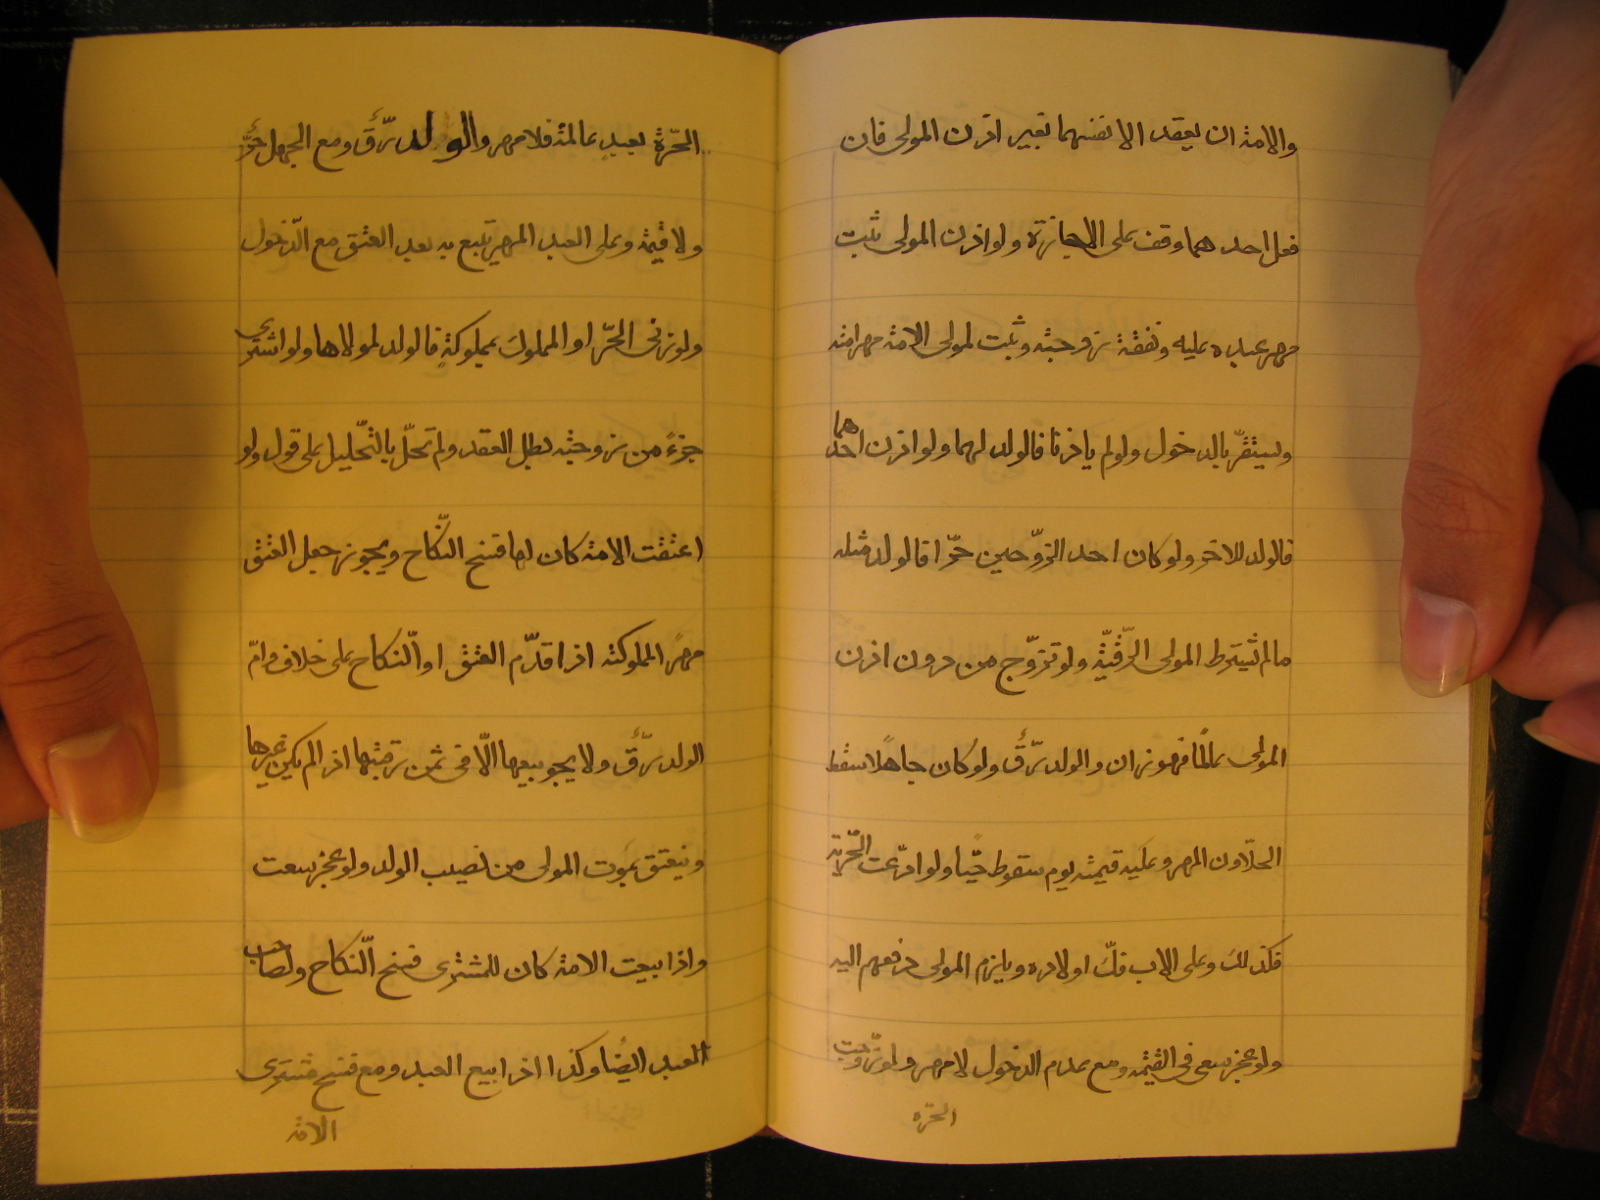 والامة ان يعقد الانفسهما بغير اذن المولى فان
فعل احدهما وقف على الاجازة ولو اذن المولى ثبت
مهر عبده عليه ونفقة زوجته وثبت لمولى الامة مهر امته
ويستقرّ بالدخول ولو لم ياذنا فالولد لهما ولو اذن احدهما
فالولد للاخر ولو كان احد الزوّجين حرّا فالولد مثله
ما لم يشترط المولى الرّقيّة ولو تزوّج من دون اذن
المولى عالمًا فهو زان والولد رّقٌ ولو كان جاهلًا سقط
الحدّ دون المهر وعليه قيمته يوم سقوط حيًّا ولو ادّعت الحّرية
فكذلك وعلى الاب فكّ اولاده ويلزم المولى دفعهم اليه
ولو عجز سعى فى القيمة ومع عدم الدخول لا مهر ولو تزّوجت
الحرّه
الحّرة بعبدٍ عالمة فلا مهر والولد رّقٌ ومع الجهل حرٌّ
ولا قيمة وعلى العبد المهر يتبع به بعد العتق مع الّدخول
ولو زنى الحّر او المملوك بمملوكةٍ فالولد لمولاها ولو اشترى
جزءً من زوجته بطل العقد ولم تحلّ بالتّحليل على قول ولو
اعتقت الامة كان لها فسخ النّكاح ويجوز جعل العتق
مهرً المملوكته اذا قدّم العتق او الّنكاح على خلاف وامّ
الولد رّقٌ ولا يجو بيعها الّا فى ثمن رقبتها اذا لم يكن غيرها
وينعتق بموت المولى من نصيب الولد ولو عجز سعت
واذا بيعت الامة كان للمشترى فسخ الّنكاح ولصاحب
العبد ايضًا وكذا اذا بيع العبد ومع فسخ مشترى
الامة